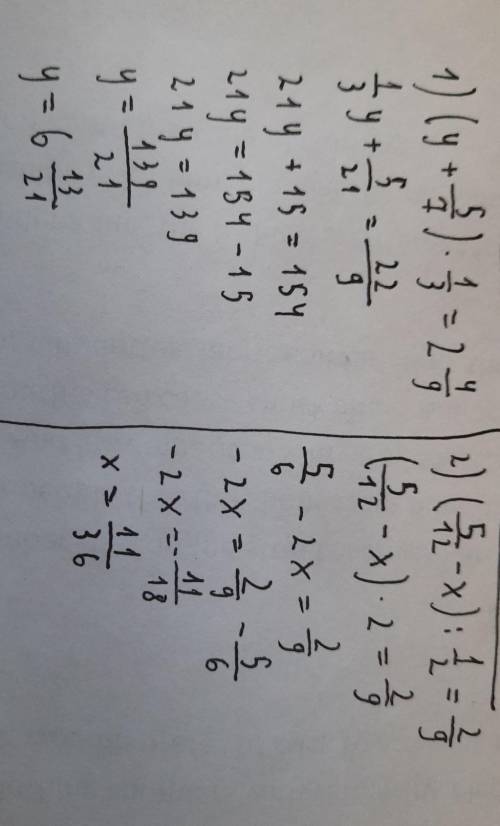 1) (y + 5/7) · 1/3 = 2 4/9
1/3 y + 5/21 = 22/9
21y + 15 = 154
21y = 154 - 15
21y = 139
y = 139/21
y = 6 13/21
2) (5/12 - x) : 1/2 = 2/9
(5/12 - x) · 2 = 2/9
5/6 - 2x = 2/9
- 2x = 2/9 - 5/6
- 2x = - 11/18
x = 11/36